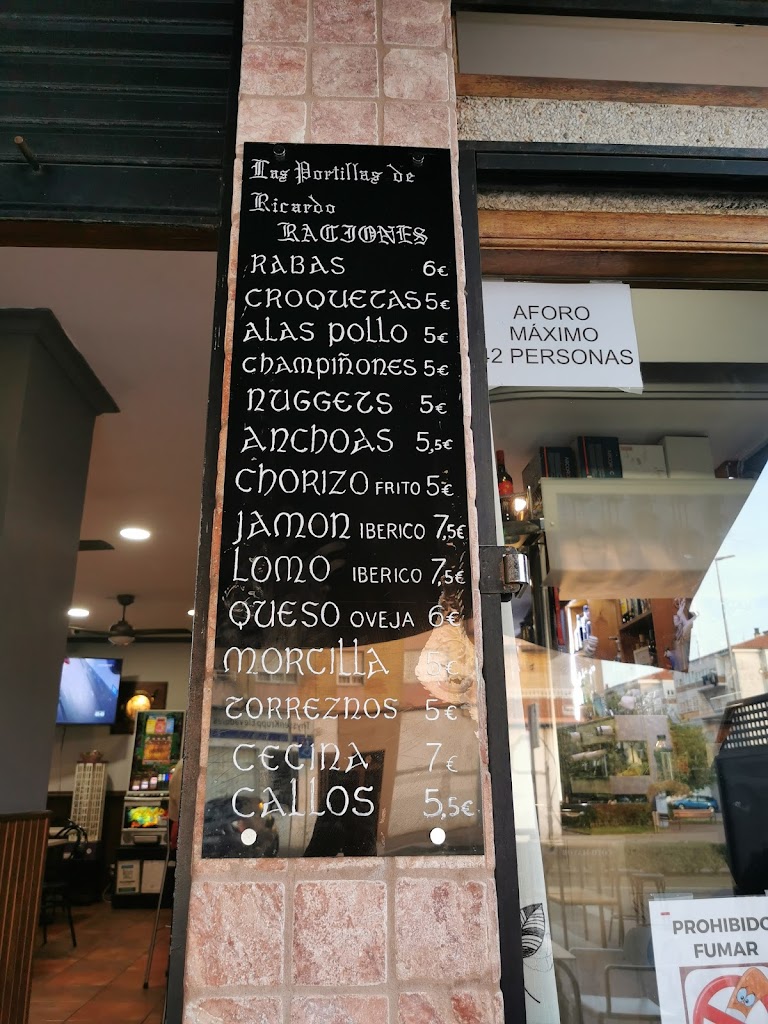 Las Portillas de
Ricardo
RACIONES
RABAS 6€
CROQUETAS 5€
ALAS POLLO 5€
CHAMPIÑONES 5€
NUGGETS 5€
ANCHOAS 5,5€
CHORIZO FRITO 5€
JAMON IBERICO 7,5€
LOMO IBERICO 7,5€
QUESO OVEJA 6€
MORCILLA 5€
TORREZNOS 5€
CECINA 7€
CALLOS 5,5€
AFORO
MÁXIMO
42 PERSONAS
PROHIBIDO
FUMAR